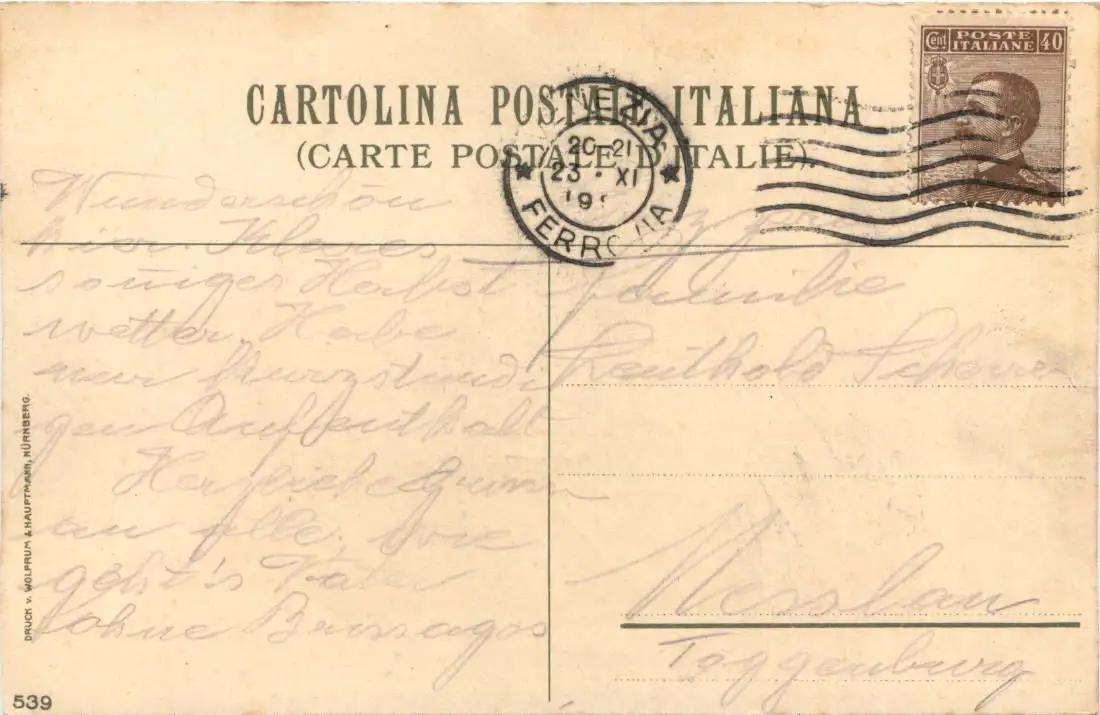 Cent POSTE ITALIANE 40
CARTOLINA POSTALE ITALIANA
(CARTE POSTALE D'ITALIE).
VENEZIA
20-21
23 · XI
19
FERROVIA
Wunderschön
hier. Klares
soniges Herbst
wetter. Habe
nur kurzstündi
gen Aufenthalt
Herzliche Grüsse
an alle. wie
geht's Vater
ohne Brissagos
Familie
Leuthold
Nesslau
Toggenburg
DRUCK v. WOLFRUM & HAUPTMANN, NÜRNBERG.
539